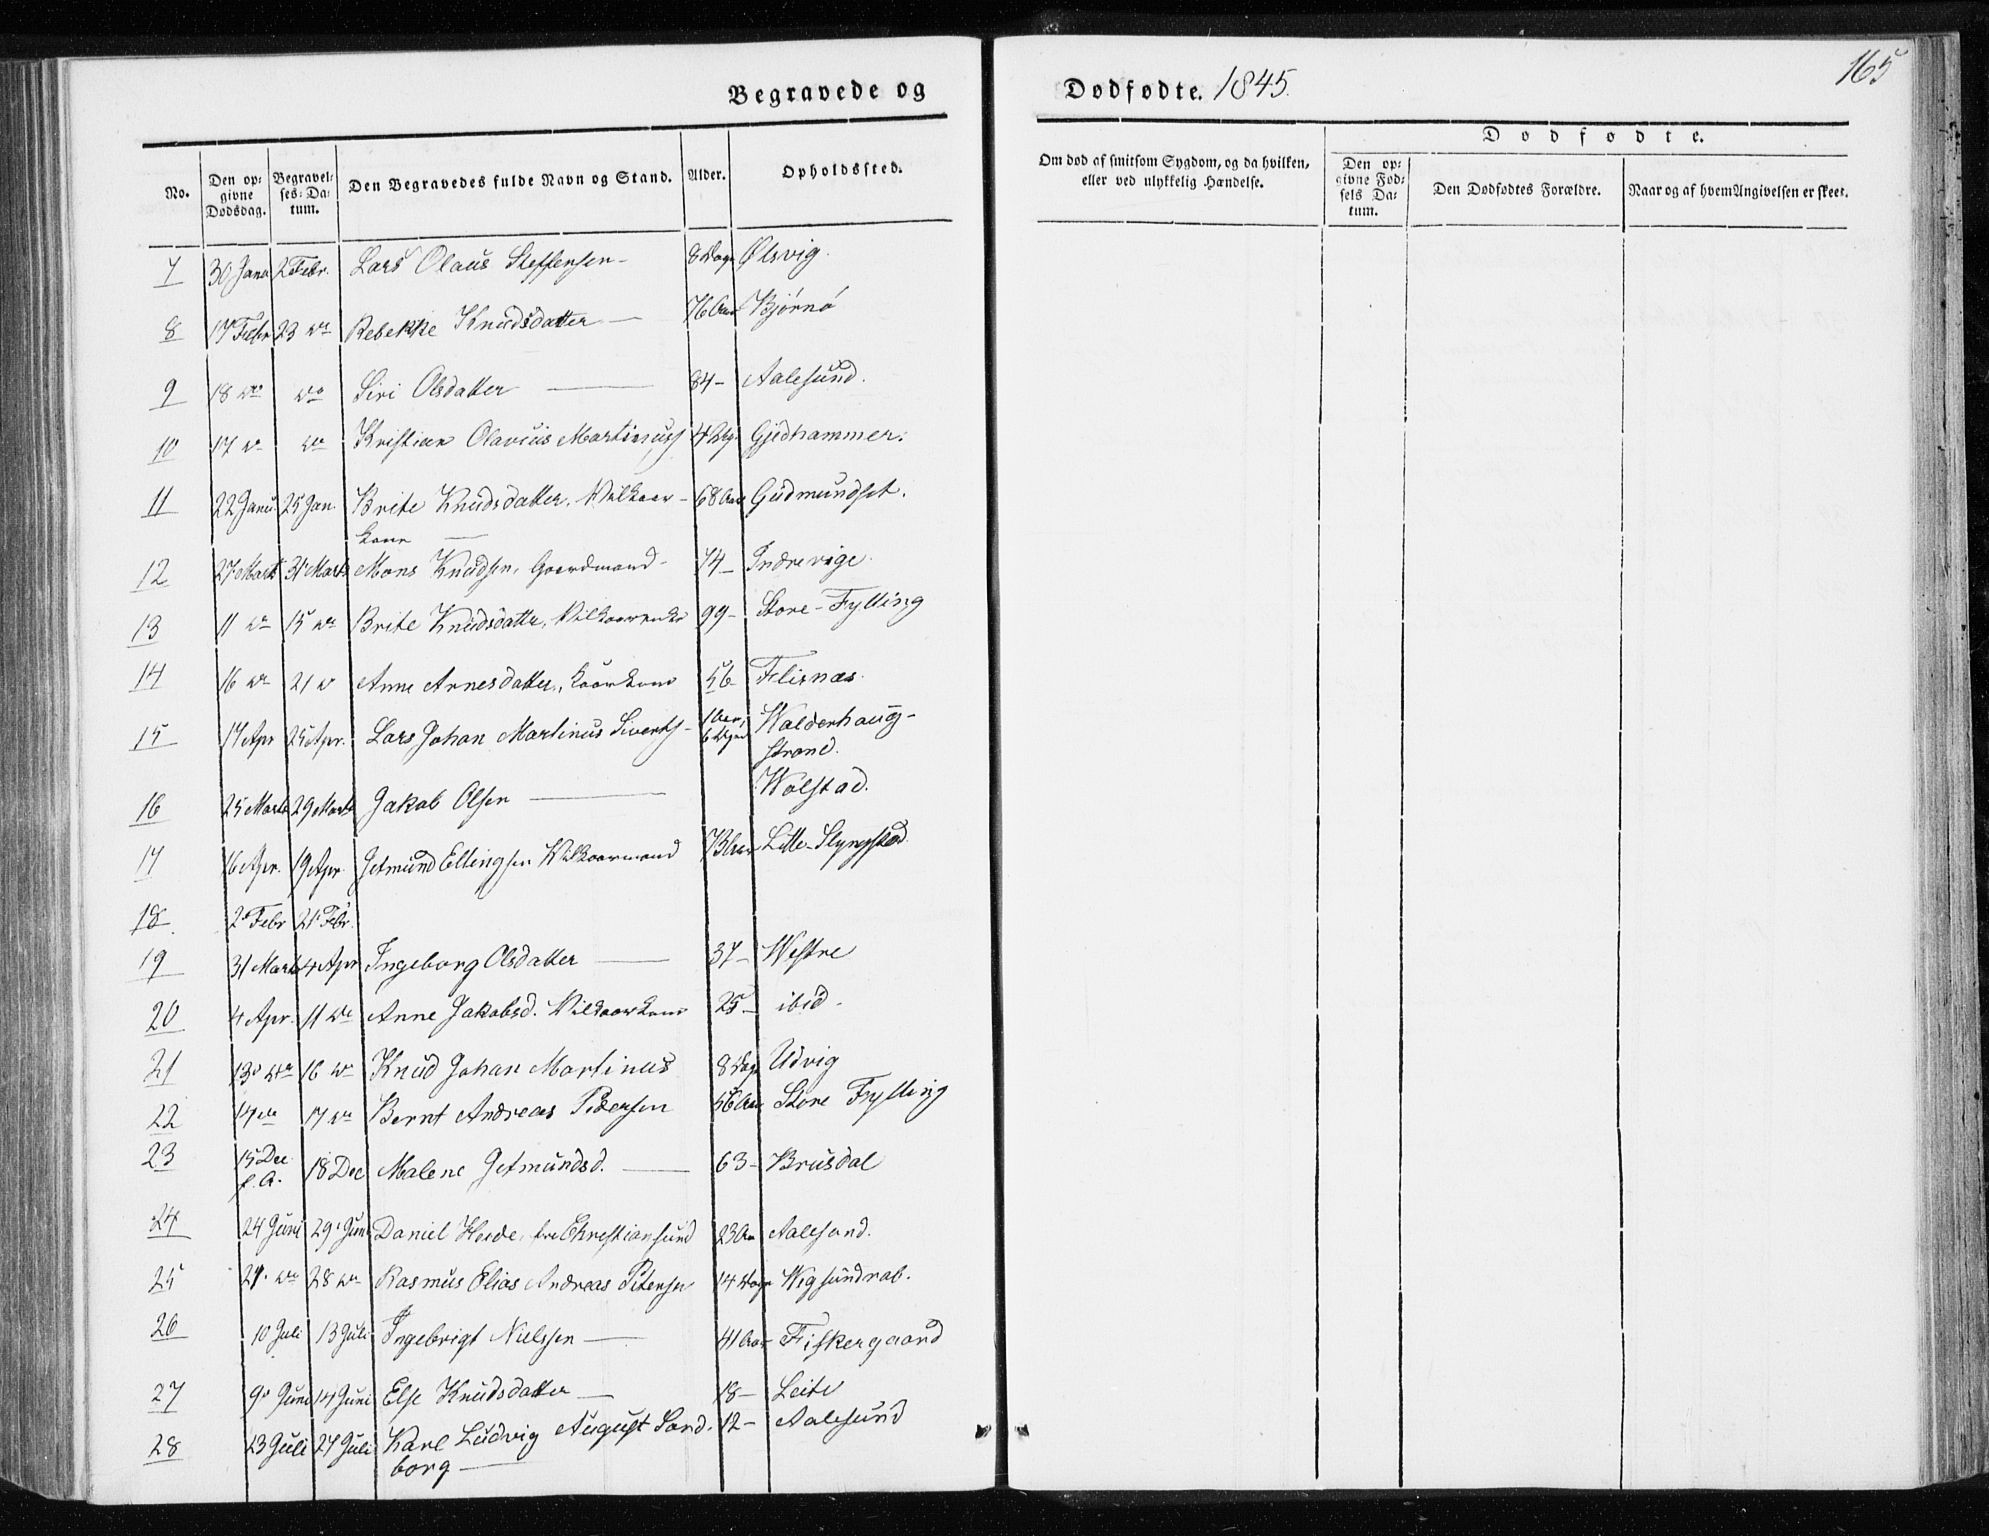 Begravede og
Dødfødte. 1845.
165
No.
Den op-
givne
Dødsdag.
Begravel-
ses-Da-
tum.
Den Begravedes fulde Navn og Stand.
Alder.
Opholdssted.
Om død af smitsom Sygdom, og da hvilken,
eller ved ulykkelig Hændelse.
Dødfødte.
Den op-
givne Fød-
sels Da-
tum.
Den Dødfødtes Forældre.
Naar og af hvem Angivelsen er skeet.
7 30 Janu 2 Febr. Lars Olaus Steffensen - 8 Dage Ølsvig.
8 17 Febr 23 do Rebekke Knudsdatter - 76 Aar Bjørnø
9 18 do do Siri Olsdatter - 84 - Aalesund.
10 17 do do Kristian Olavus Martinuss 4 Dg. Gjedhammer.
11 22 Janu 25 Jan. Brite Knudsdatter, Vilkaar - 68 Aar Gudmundset.
kone -
12 27 Marts 31 Marts Mons Knudsen, Gaardmand - 74 - Indrevige.
13 11 do 15 do Brite Knudsdatter, Vilkaarenke 99 - Store-Fylling
14 16 do 21 do Anne Arnesdatter, kaarkone 56 Flisnæs.
15 17 Apr 25 Apr. Lars Johan Martinus Siverts - 1 Aar, Walderhaug-
strand.
16 25 Marts 29 Marts Jakob Olsen - Wolstad.
17 16 Apr. 19 Apr. Jetmund Ellingsen Vilkaarmand 73 Aar Lille-Slyngstad
18 2 Febr 21 Febr.
19 31 Marts 4 Apr Ingeborg Olsdatter - 37 - Westre
20 4 Apr. 11 do Anne Jakobsd. Vilkaarkone 25 - ibid.
21 13 do 16 do Knud Johan Martinus 8 Dage Udvig
22 14 do 17 do Bernt Andreas Pedersen 56 Aar Store Fylling
23 15 Dec 18 Dec Malene Jetmundsd. - 63 - Brusdal
f. A.
24 24 Juni 29 Juni Daniel Heide, fra Christiansund 23 Aar Aalesund.
25 21 do 28 do Rasmus Elias Andreas Petersen 14 Dage
26 10 Juli 13 Juli Ingebrigt Nielssen - 41 Aar Fiskergaard
27 9 Juni 14 Juni Else Knudsdatter - 18 - Leite
28 23 Juli 27 Juli Karl Ludvig August Sand- 12 - Aalesund
borg -